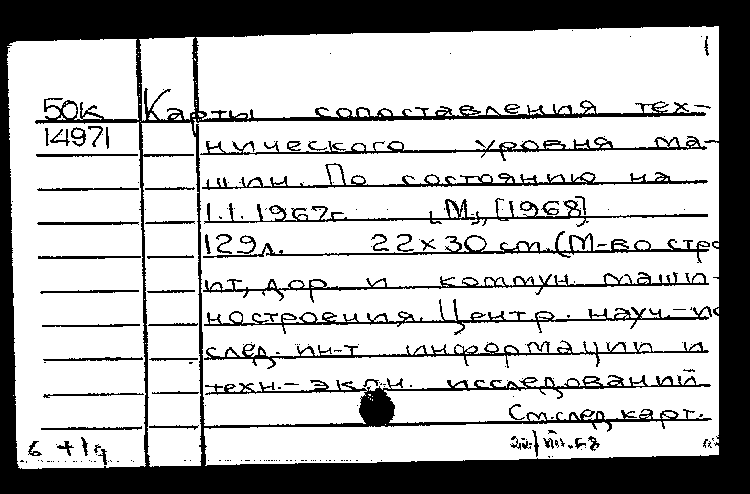 1
50к Карты сопоставления тех-
14971 нического уровня ма-
шин. По состоянию на
1.1.1967г. „М„, [1968]
129л. 22×30 см. (М-во стро
ит, дор. и коммун. маши-
ностроения. Центр. науч.-ис
след. ин-т информации и
техн.-экон. исследований
См.след.карт.
6 +1g 22/VIII.68